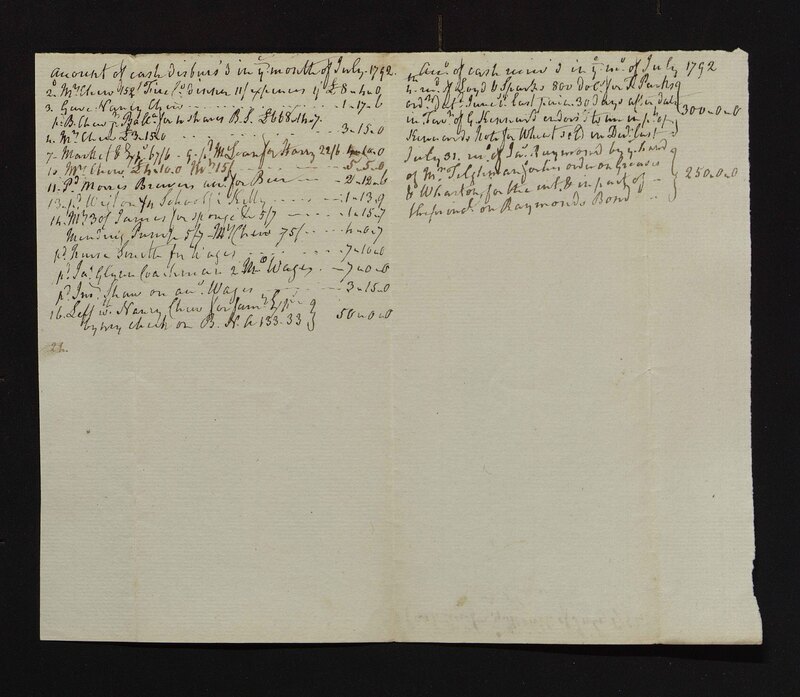 Amount of cash disburs'd in ye month of July. 1792.
2. Mrs Chew 152/ Fire Co. dinner 11/ expences ye £ 8-4-0
3. Gave Nancy Chew 1-17-6
pd B. Chew Balle for shares B.S. £668.14.7.
4. Mrs Chew £3.15.0 3-15-0
7- Market & 67/6 - 9. pd McLean for Harry 22/6 4-10-0
10. Mrs Chew £4-10-0 Do 15/ 5-5-0
11. Pd Morris Brewers acct for Beer 2-12-6
13. pd Wilson for School 1-13-9
14. Mr of James for sponge &c 5/7 1-15-7
Mending Pump 5/7 Mrs Chew 75/ 4-0-7
pd nurse Smith for Wages 7-10-0
pd Jas Glynn Coachman 2 Mos Wages 7-0-0
pd Jno Shaw on acct Wages 3-15-0
16. Left wh Nancy Chew for family
by my check on B. N. A 133.33 50-0-0
21.
Acct of cash receiv'd in ye mo. of July 1792
4. recd of Loyd & Sparks 800 dolls for T. Parks
June last payn 30 days after date
in favr of G Kennard endors'd to me in pt of 300-0-0
Kennards Note for Wheat sold in Decr last
July 31. recd of Jas Raymond by ye hand
of Mr Tilghman for his order on Greaves
& Wharton for the int. & in part of 250-0-0
the princl on Raymonds Bond